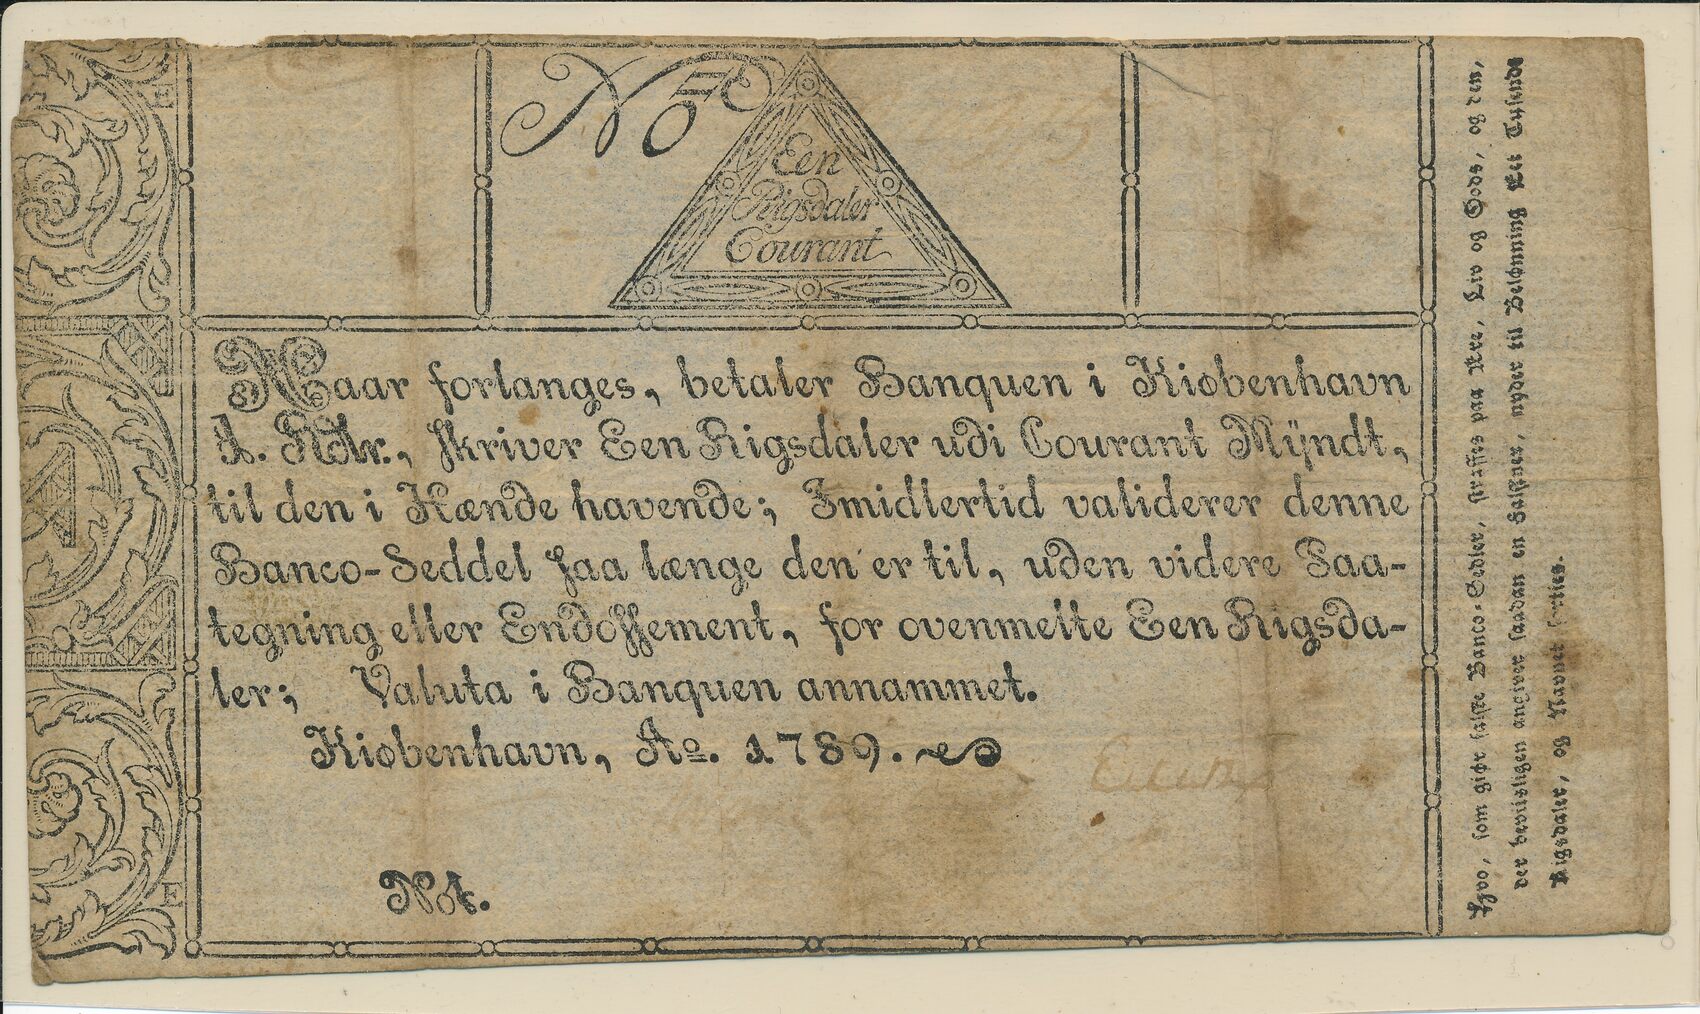 No
Een
Rigsdaler
Courant
Naar forlanges, betaler Banquen i Kiøbenhavn
1. Rdlr., skriver Een Rigsdaler udi Courant Mÿndt,
til den i Hænde havende; Imidlertid validerer denne
Banco-Seddel saa længe den er til, uden videre Paa-
tegning eller Endossement, for ovenmelte Een Rigsda-
ler; Valuta i Banquen annammet.
Kiøbenhavn, Ao. 1789.
No 1.
som giøre falske Banco-Sedler, straffes paa Ære, Liv og Gods, og
der beviisligen angiver saadan en Falskner, nyder til Belønning Et Tusinde
Rigsdaler, og Navnet forties.
E
E